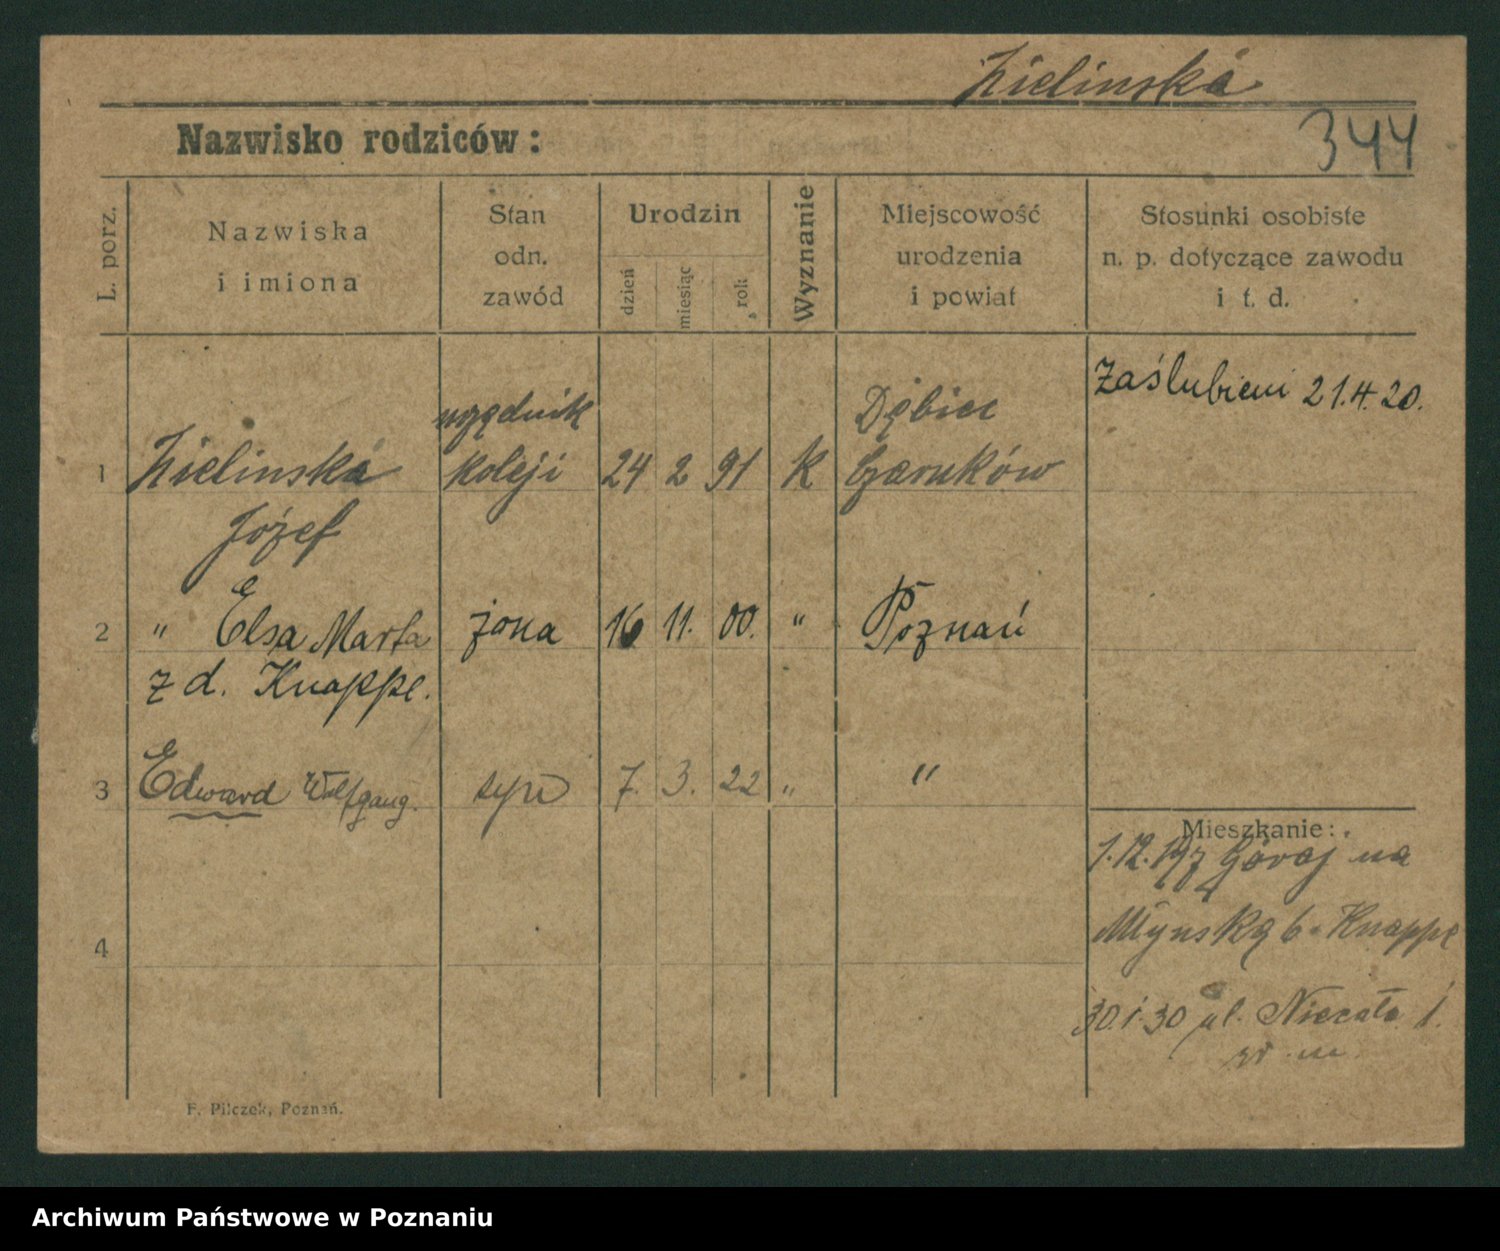 Zielinská
Nazwisko rodziców:
344
L. porz.
Nazwiska
i imiona
Stan
odn.
zawód
Urodzin
dzień
miesiąc
rok
Wyznanie
Miejscowość
urodzenia
i powiat
Stosunki osobiste
n. p. dotyczące zawodu
i t. d.
Zaślubieni 21.4.20.
urzędnik Dębiec
1 Zielinská koleji 24 2 91 K Czarnków
Józef
2 " Elsa Marta żona 16 11. 00. " Poznań
z d. Knappe.
3 Edward Wolfgang. syn 7. 3. 22 " "
Mieszkanie:
1.12. Góraj na
4
Młynską 6 Knappe
30.1.30 ul. Niecała 1.
F. Pilczek, Poznań.
Archiwum Państwowe w Poznaniu